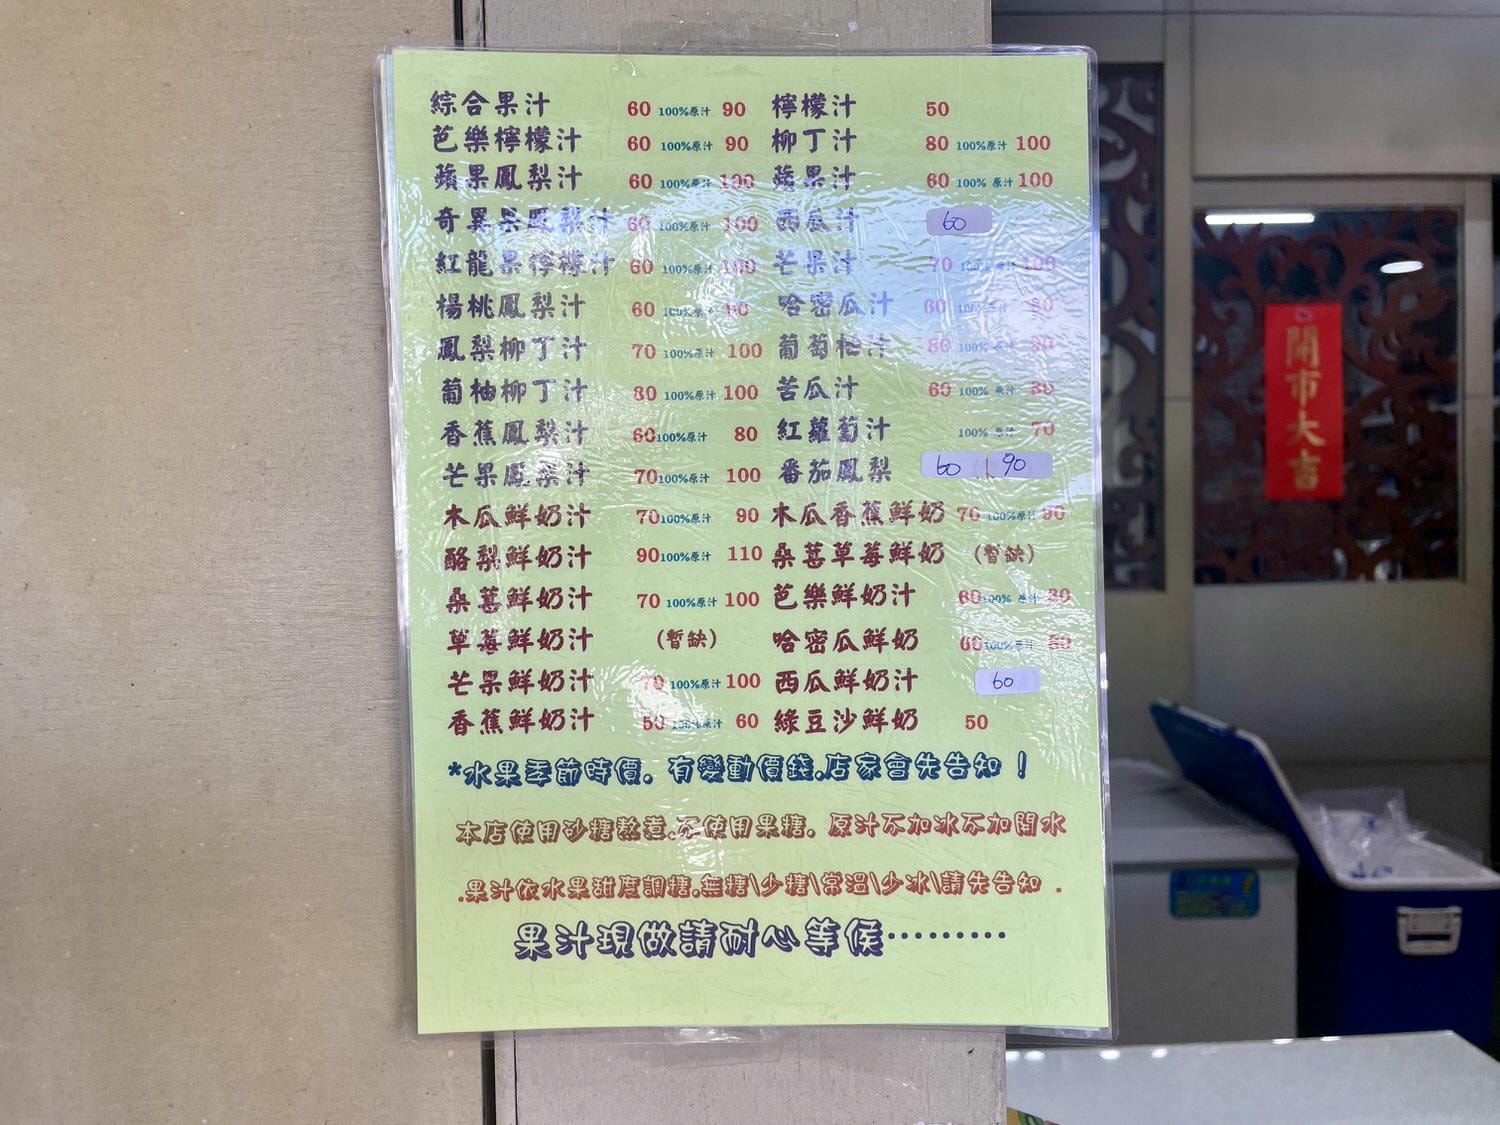 綜合果汁 60 100%原汁 90 檸檬汁 50
芭樂檸檬汁 60 100%原汁 90 柳丁汁 80 100%原汁 100
蘋果鳳梨汁 60 100%原汁 100 蘋果汁 60 100% 原汁 100
奇異果鳳梨汁 60 100%原汁 100 西瓜汁 60
紅龍果檸檬汁 60 100%原汁 100 芒果汁 70 100% 原汁 100
楊桃鳳梨汁 60 100%原汁 哈密瓜汁 60 100%原汁
鳳梨柳丁汁 70 100%原汁 100 葡萄柚汁 100% 原汁
葡柚柳丁汁 80 100%原汁 100 苦瓜汁 60 100% 原汁 80
香蕉鳳梨汁 60 100%原汁 80 紅蘿蔔汁 100% 原汁 70
芒果鳳梨汁 70 100%原汁 100 番茄鳳梨 60 90
木瓜鮮奶汁 70 100%原汁 90 木瓜香蕉鮮奶 70 100%原汁 90
酪梨鮮奶汁 90 100%原汁 110 桑葚草莓鮮奶 (暫缺)
桑葚鮮奶汁 70 100%原汁 100 芭樂鮮奶汁 60 100% 原汁
草莓鮮奶汁 (暫缺) 哈密瓜鮮奶 60 100%原汁
芒果鮮奶汁 70 100%原汁 100 西瓜鮮奶汁 60
香蕉鮮奶汁 50 100%原汁 60 綠豆沙鮮奶 50
*水果季節時價. 有變動價錢.店家會先告知！
本店使用砂糖熬煮.不使用果糖. 原汁不加冰不加開水
.果汁依水果甜度調糖.無糖\少糖\常溫\少冰\請先告知 .
果汁現做請耐心等侯………
開市大吉